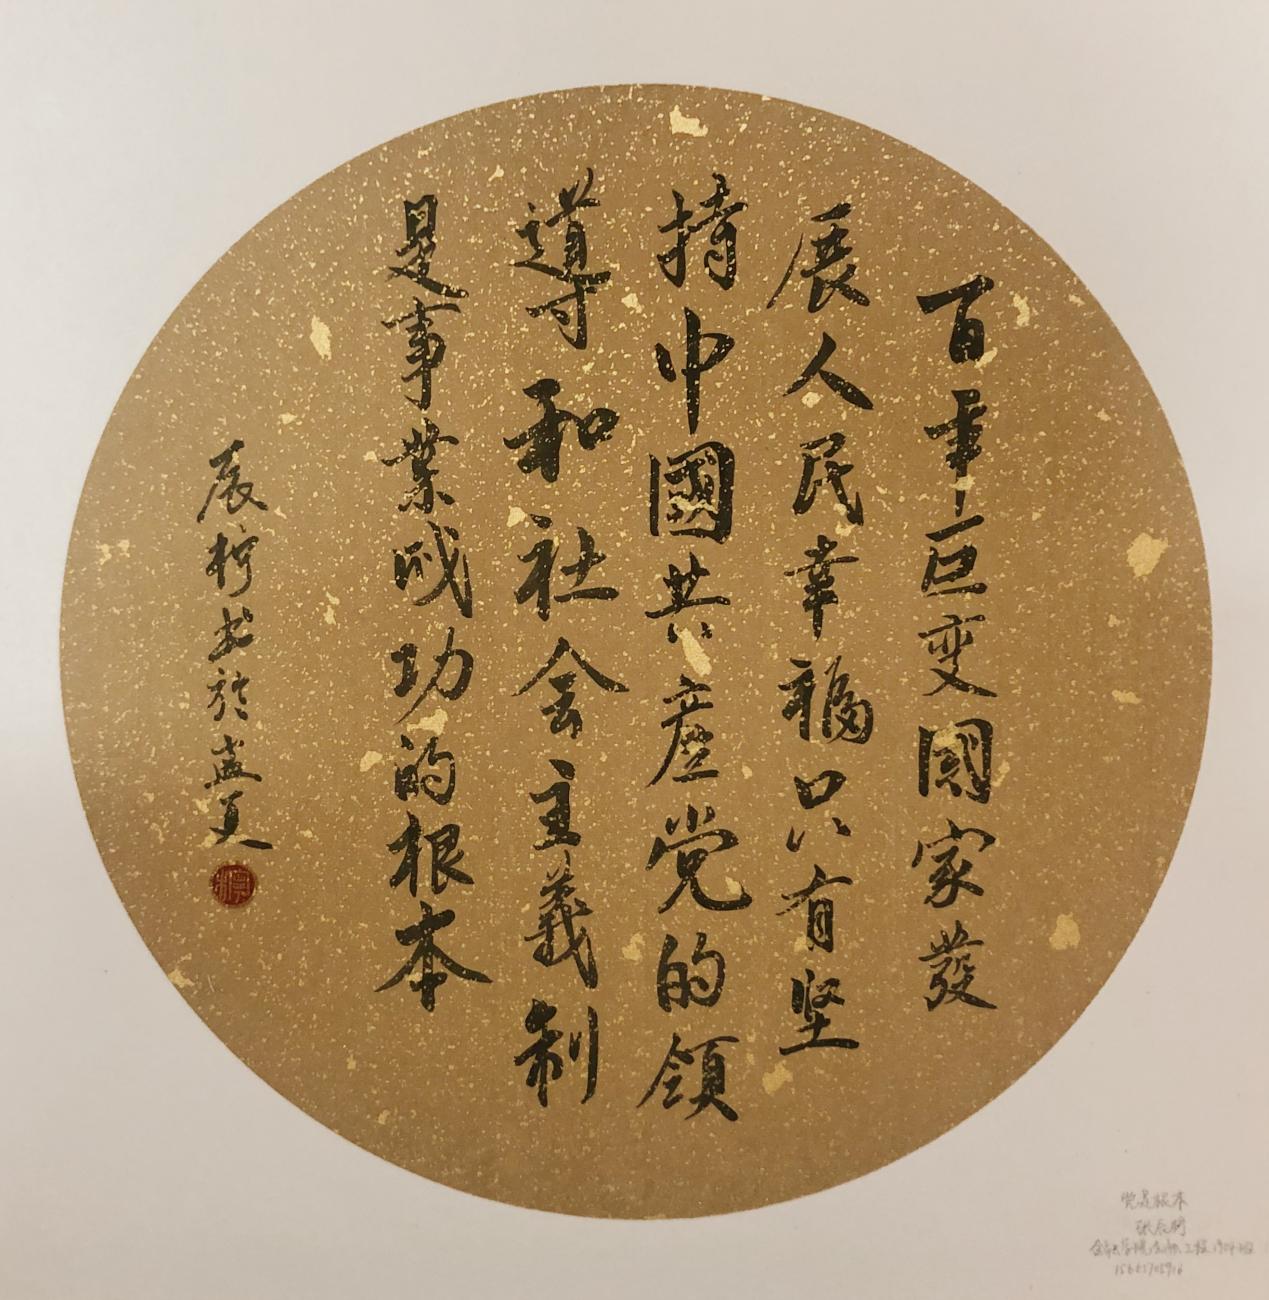 百年巨变國家發
展人民幸福只有坚
持中國共産党的領
導和社会主義制
是事業成功的根本
辰柠书於盛夏
党是根本